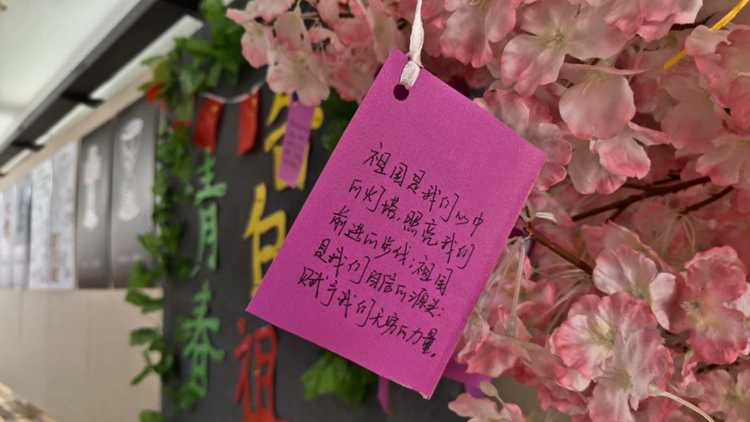 祖国是我们心中
的灯塔,照亮我们
前进的步伐;祖国
是我们自信的源头;
赋予我们无穷的力量。
青春
告白
祖